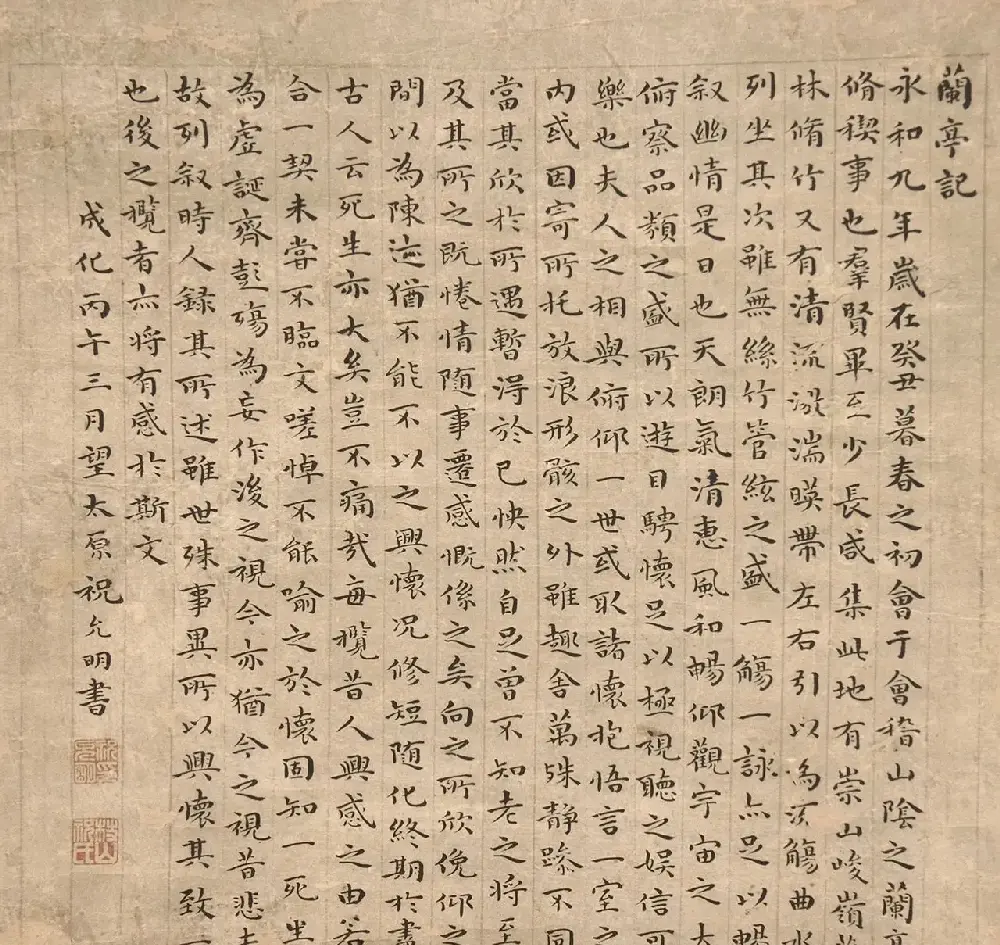 蘭亭記
永和九年歲在癸丑暮春之初會于會稽山陰之蘭亭
脩稧事也羣賢畢至少長咸集此地有崇山峻嶺
林脩竹又有清流激湍暎帶左右引以為流觴曲水
列坐其次雖無絲竹管絃之盛一觴一詠亦足以暢
叙幽情是日也天朗氣清惠風和暢仰觀宇宙之大
俯察品類之盛所以遊目騁懷足以極視聽之娛信可
樂也夫人之相與俯仰一世或取諸懷抱悟言一室之
内或因寄所托放浪形骸之外雖趣舍萬殊静躁不同
當其欣於所遇暫得於己怏然自足曾不知老之將至
及其所之既惓情随事遷感慨係之矣向之所欣俛仰之
間以為陳迹猶不能不以之興懷况修短随化終期於盡
古人云死生亦大矣豈不痛哉每攬昔人興感之由若
合一契未甞不臨文嗟悼不能喻之於懷固知一死生
為虛誕齊彭殤為妄作後之視今亦猶今之視昔悲夫
故列叙時人録其所述雖世殊事異所以興懷其致一
也後之攬者亦将有感於斯文
成化丙午三月望太原祝允明書